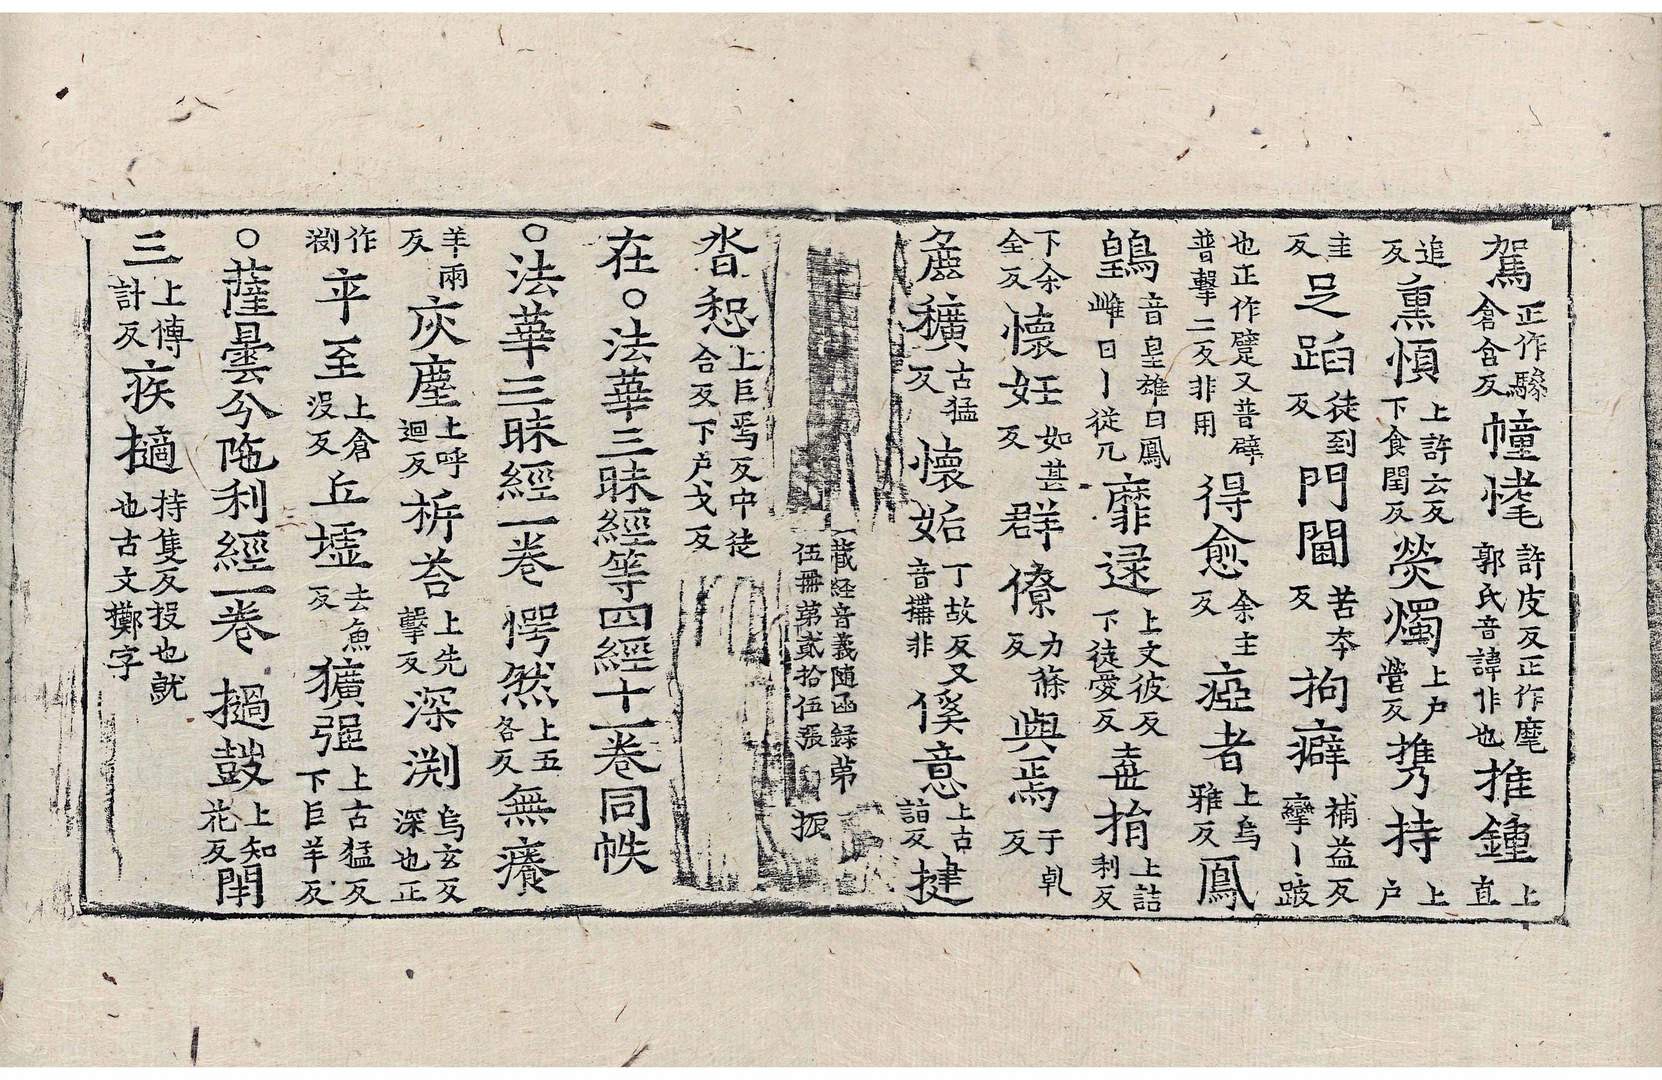 駕正作驂倉含反幢恅許皮反正作麾郭氏音諱非也推鍾上直
追反熏煩上許云反下食閏反熒燭上户營反携持上户
圭反足蹈徒到反門閫苦夲反拘癖補益反攣丨跛
也正作躄又普擘普擊二反非用得愈余主反瘂者上烏雅反鳳
鷍音皇雄曰鳳雌曰丨從几靡逯上文彼反下徒愛反壴揹上詰利反
下余全反懷妊如甚反群僚力條反與焉于乹反
麁穬古猛反懷妬丁故反又音搆非傒意上古詣反揵
藏経音義随函録苐
伍冊第貳拾伍張 振
沓惒上巨焉反中徒合反下户戈反
在○法華三昧經等四經十一卷同帙
○法華三昧經一卷 愕然上五各反無癢
羊兩反灰塵上呼迴反㭊荅上先擊反深渕烏玄反深也正
作渕卒至上倉没反丘墟去魚反獷强上古猛反下巨羊反
○薩曇分陁利經一卷 撾鼓上知花反閈
三上博計反疾擿持隻反投也就也古文擲字